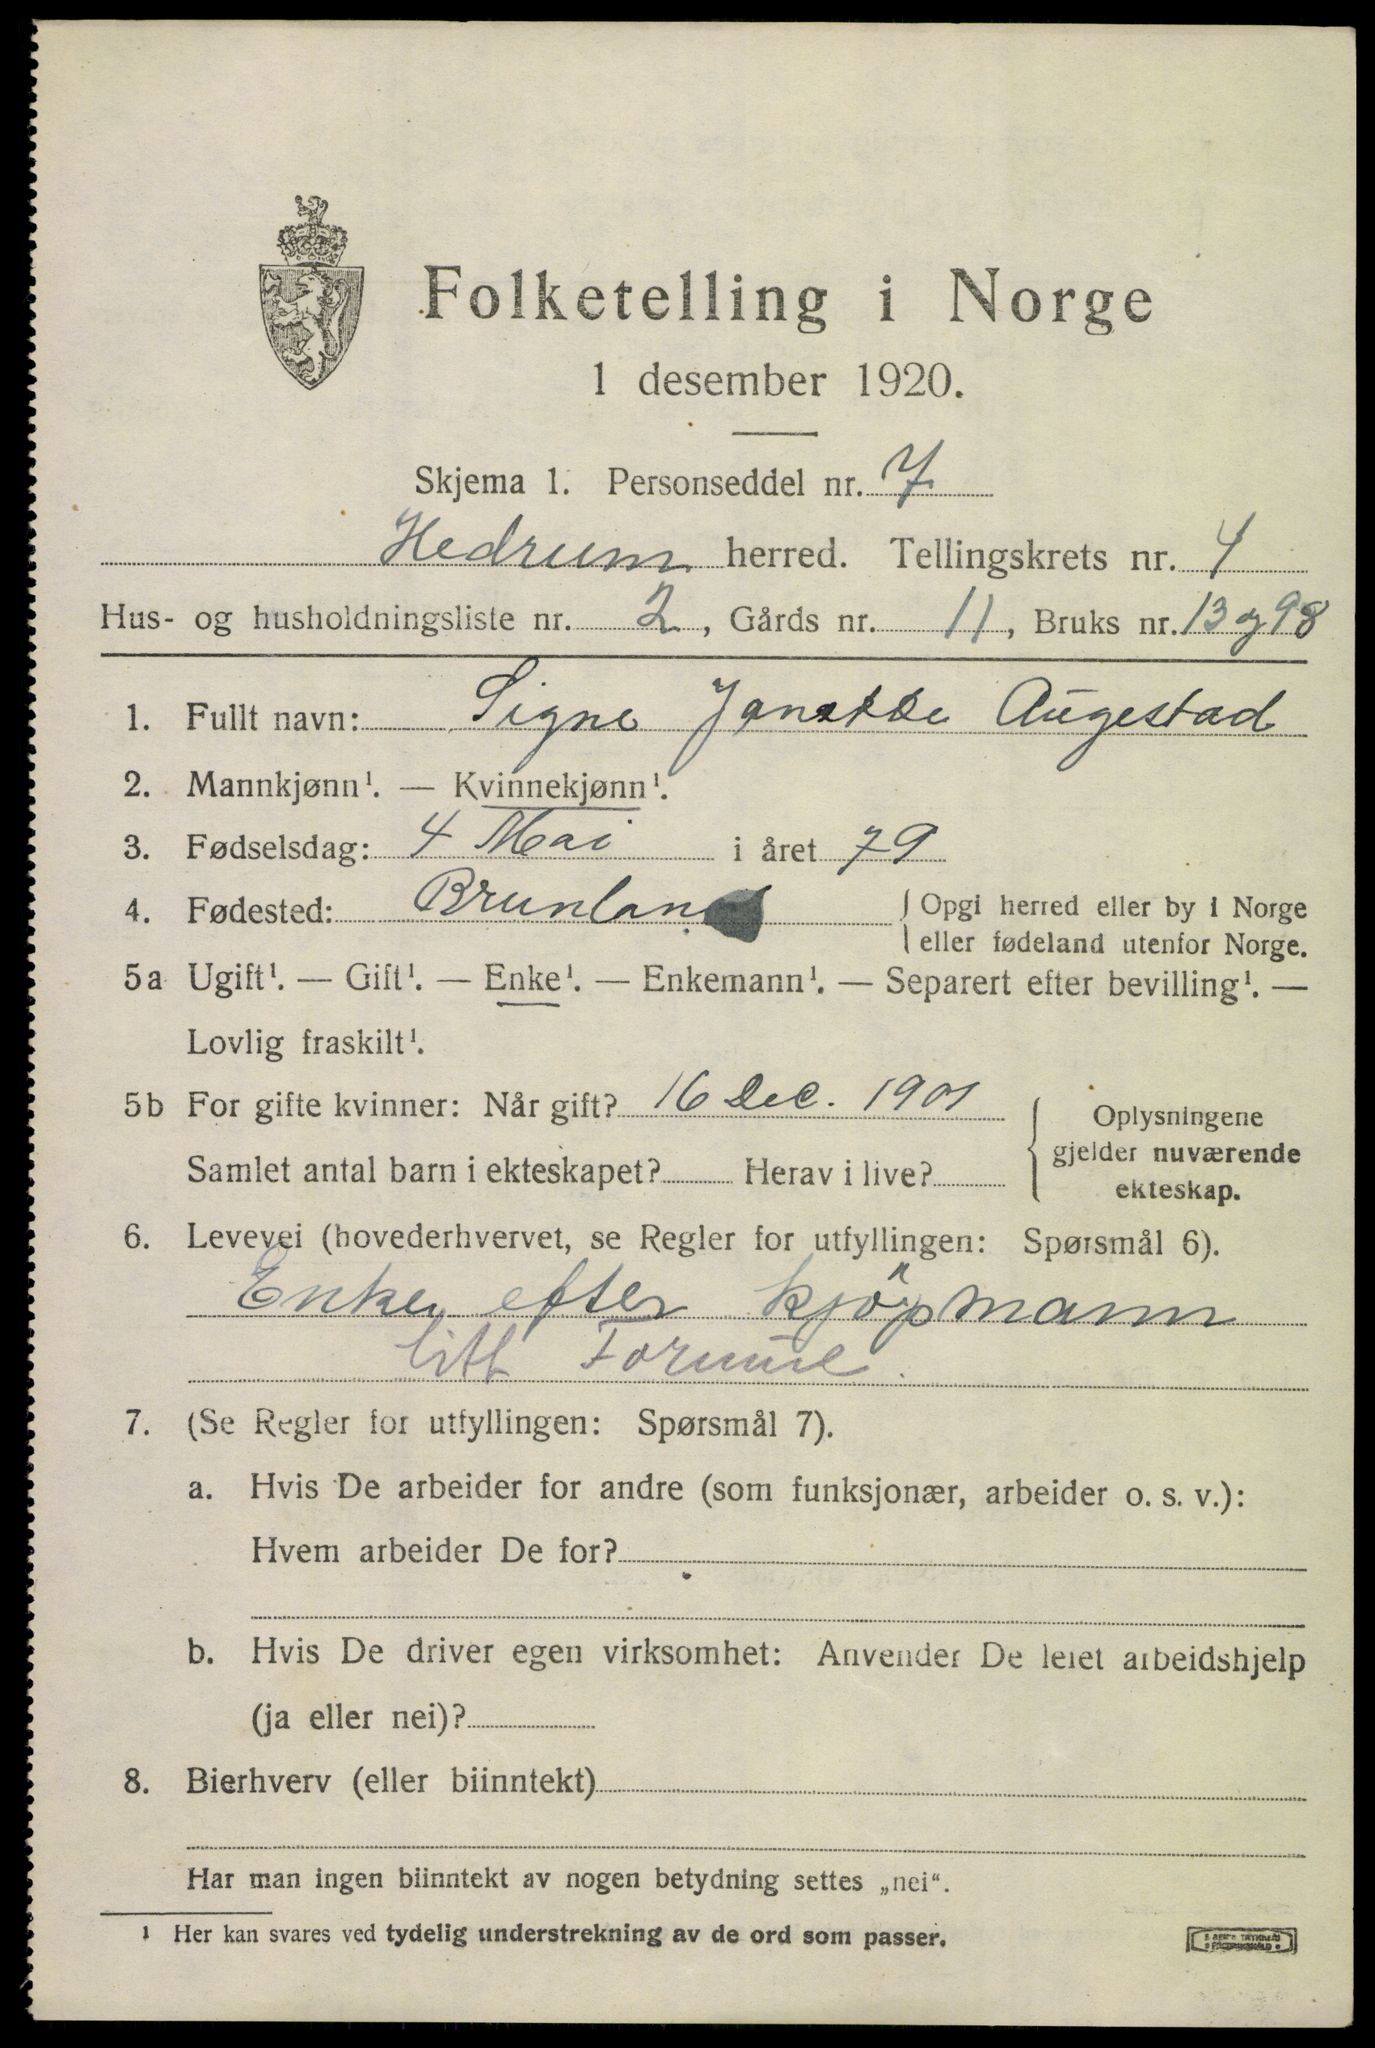 Folketelling i Norge
1 desember 1920.
Skjema 1. Personseddel nr. 7
Hedrum herred. Tellingskrets nr. 4
Hus- og husholdningsliste nr. 2, Gårds nr. 11, Bruks nr. 13 og 98
1. Fullt navn: Signe Janette Augestad
2. Mannkjønn¹. — Kvinnekjønn¹.
3. Fødselsdag: 4 Mai i året 79
4. Fødested: Brunlanes { Opgi herred eller by i Norge
eller fødeland utenfor Norge.
5a Ugift¹. — Gift¹. — Enke¹. — Enkemann¹. — Separert efter bevilling¹. —
Lovlig fraskilt¹.
5b For gifte kvinner: Når gift? 16 Dec. 1901
Samlet antal barn i ekteskapet? Herav i live?
{ Oplysningene
gjelder nuværende
ekteskap.
6. Levevei (hovederhvervet, se Regler for utfyllingen: Spørsmål 6).
Enke efter kjöpmann
litt Formue.
7. (Se Regler for utfyllingen: Spørsmål 7).
a. Hvis De arbeider for andre (som funksjonær, arbeider o. s. v.):
Hvem arbeider De for?
b. Hvis De driver egen virksomhet: Anvender De leiet arbeidshjelp
(ja eller nei)?
8. Bierhverv (eller biinntekt)
Har man ingen biinntekt av nogen betydning settes „nei“.
¹ Her kan svares ved tydelig understrekning av de ord som passer.